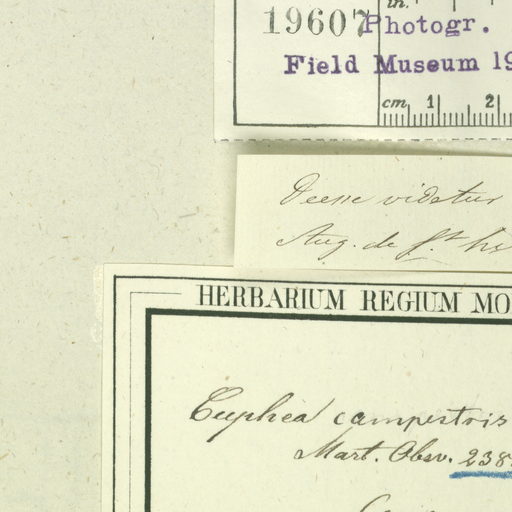 in.
19607 Photogr.
Field Museum 19
cm 1 2
Deesse videtur
Aug. de St. 
HERBARIUM REGIUM MO
Cuphea campestris
Mart. Obsv. 238